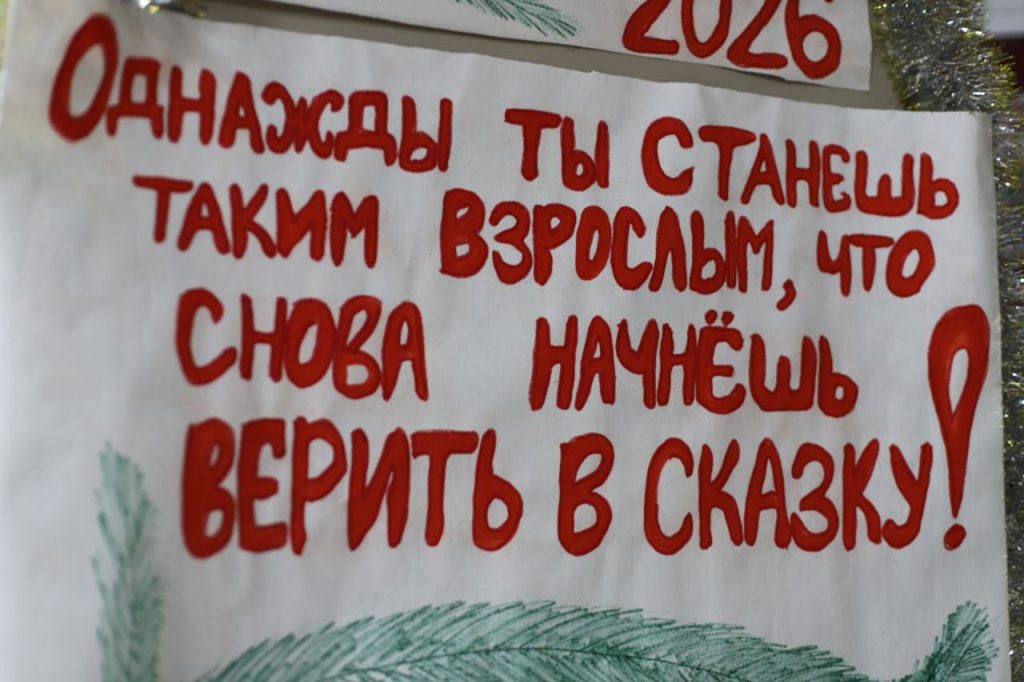 2026
Однажды ты станешь
таким взрослым, что
снова начнёшь
верить в сказку!